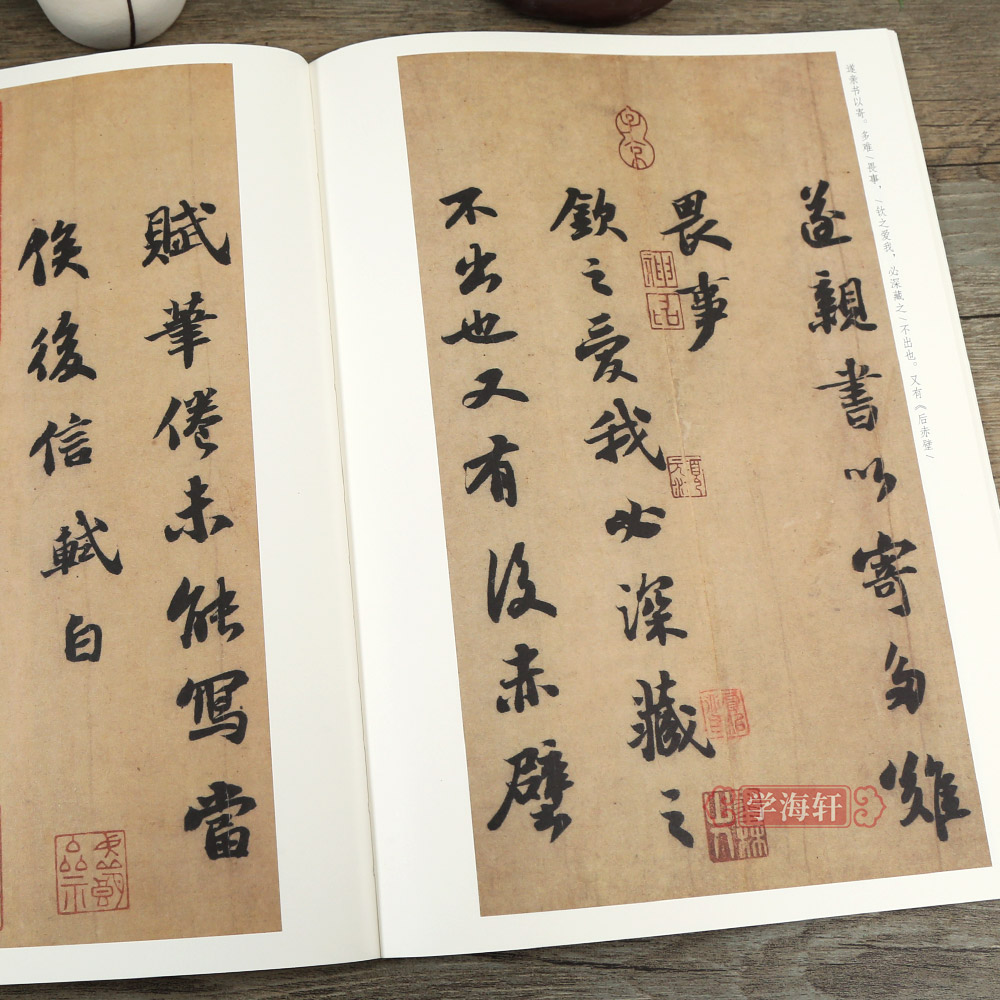 遂亲书以寄。多难\畏事，\钦之爱我，必深藏之\不出也。又有《后赤壁\
遂親書以寄多難
畏事
欽之愛我必深藏之
不出也又有後赤壁
賦筆倦未能寫當
俟後信軾白
学海轩